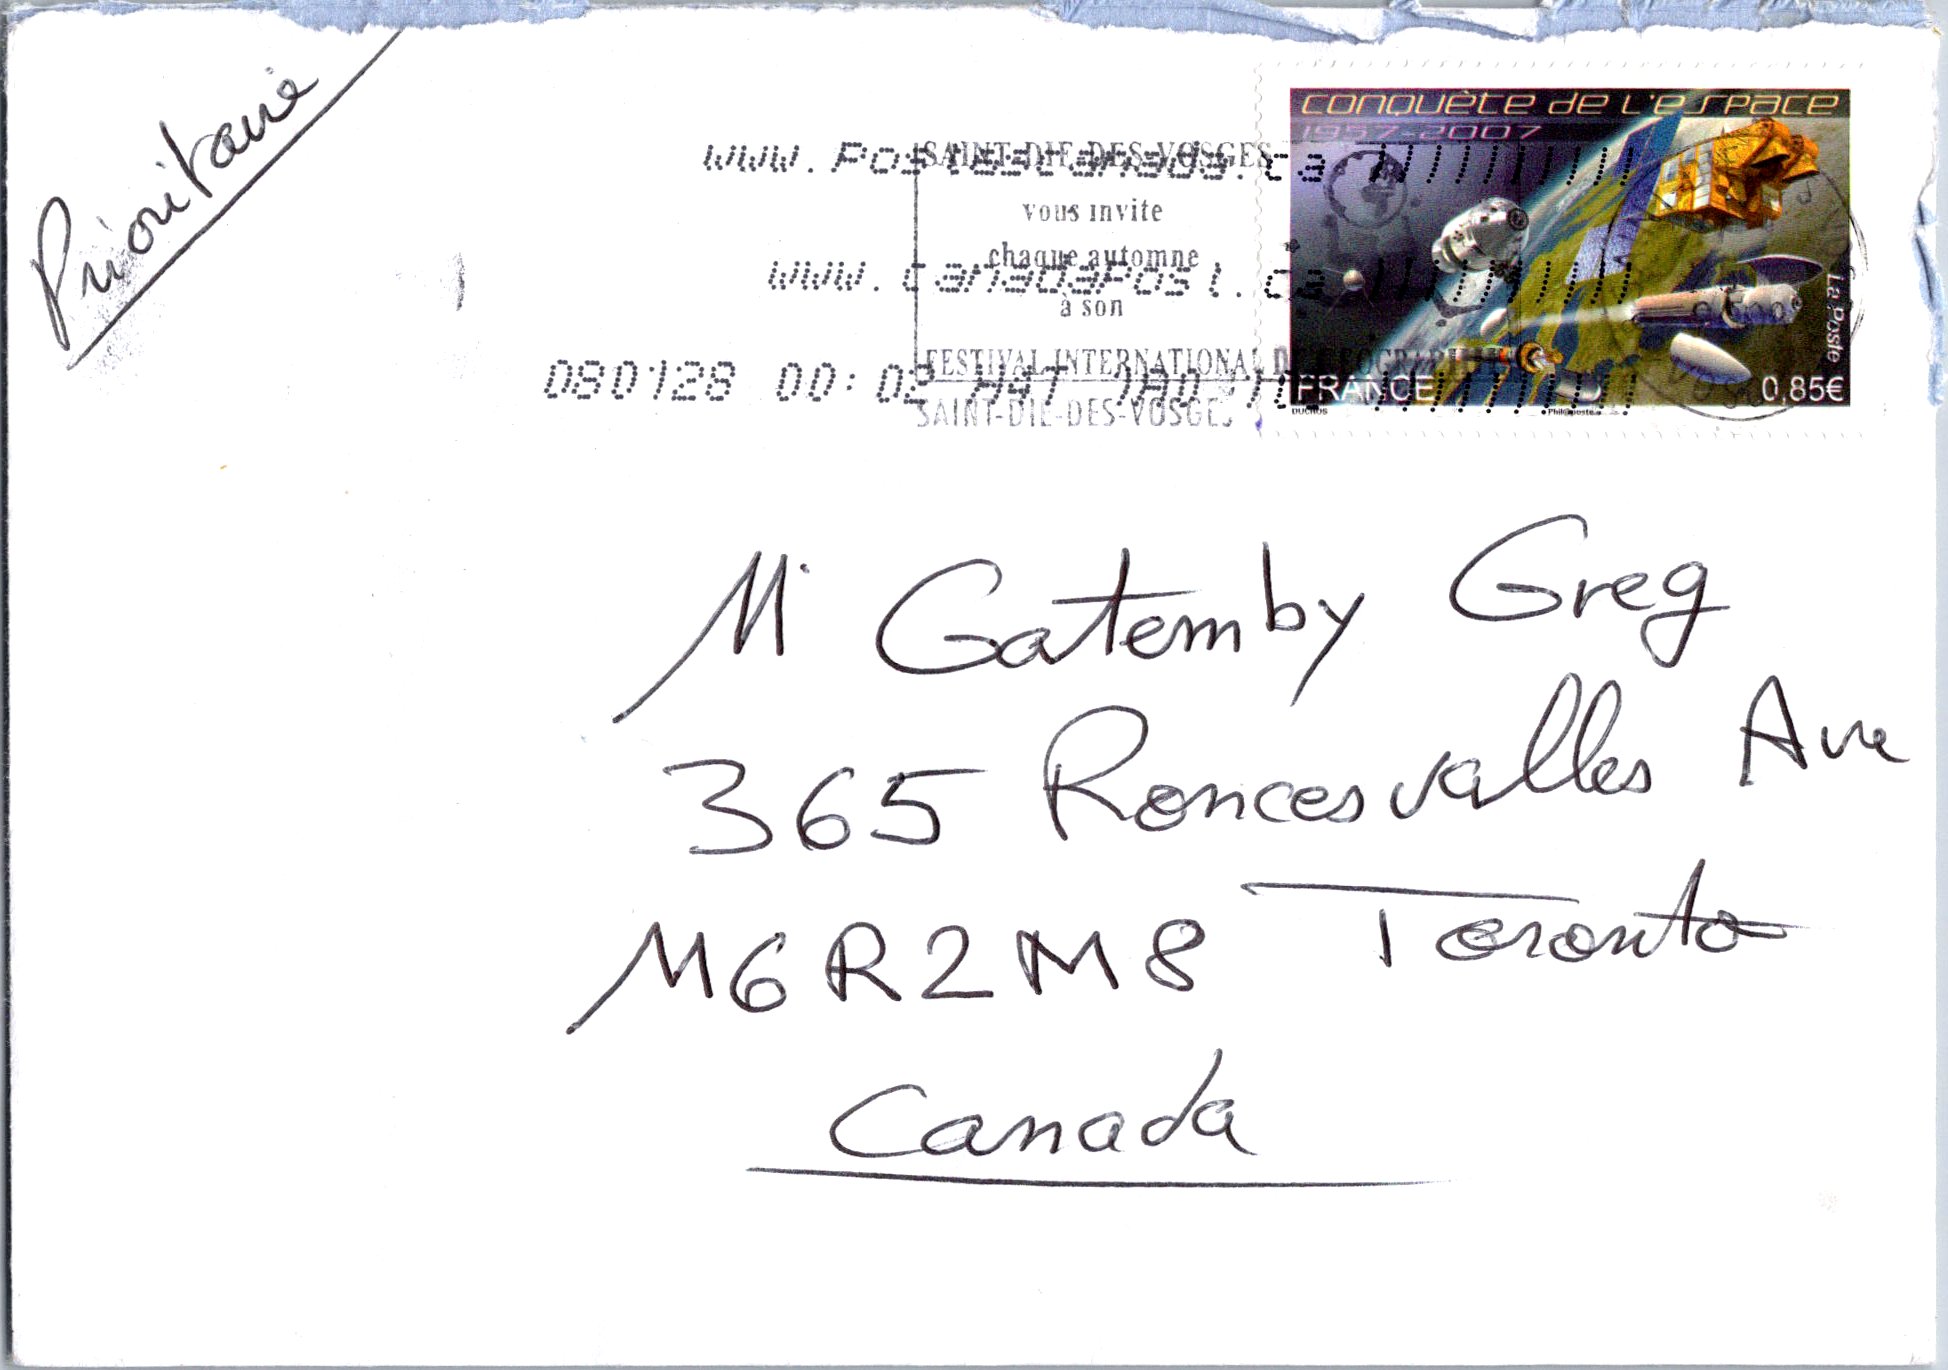 Prioritaire
CONQUÊTE DE L'ESPACE
1957-2007
www.PostesCanada.ca
SAINT-DIE-DES-VOSGES
vous invite
chaque automne
www.CanadaPost.ca
à son
FESTIVAL INTERNATIONAL
080128 00:02
SAINT-DIE-DES-VOSGES
La Poste
FRANCE 0,85€
DUCHOS Phil@poste
M Gatemby Greg
365 Roncesvalles Ave
M6R2M8 Toronto
Canada